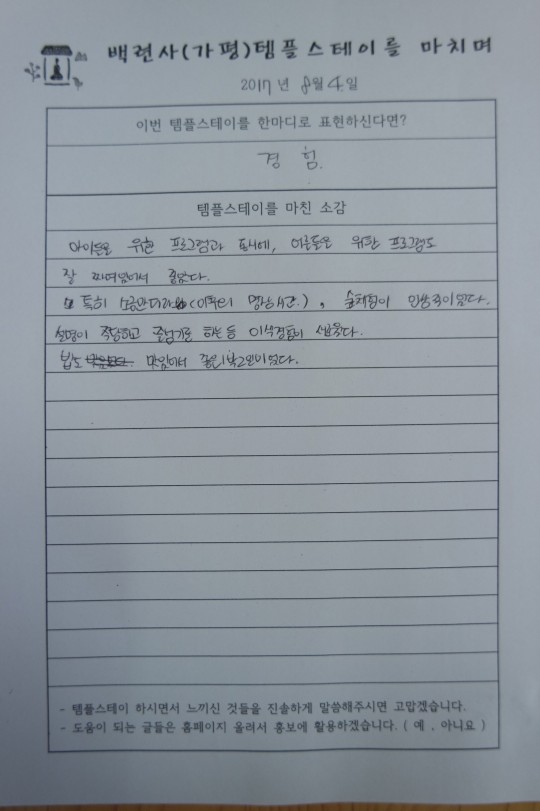 백련사(가평)템플스테이를 마치며
2017년 8월 4일
이번 템플스테이를 한마디로 표현하신다면?
경 험.
템플스테이를 마친 소감
아이들을 위한 프로그램과 동시에, 어른들을 위한 프로그램도
잘 짜여있어서 좋았다.
특히 소금만다라 (이후의 명상시간.), 숲체험이 인상적이었다.
설명이 적당하고 줄넘기를 하는 등
밥도 맛있어서
- 템플스테이 하시면서 느끼신 것들을 진솔하게 말씀해주시면 고맙겠습니다.
- 도움이 되는 글들은 홈페이지 올려서 홍보에 활용하겠습니다. ( 예 , 아니요 )